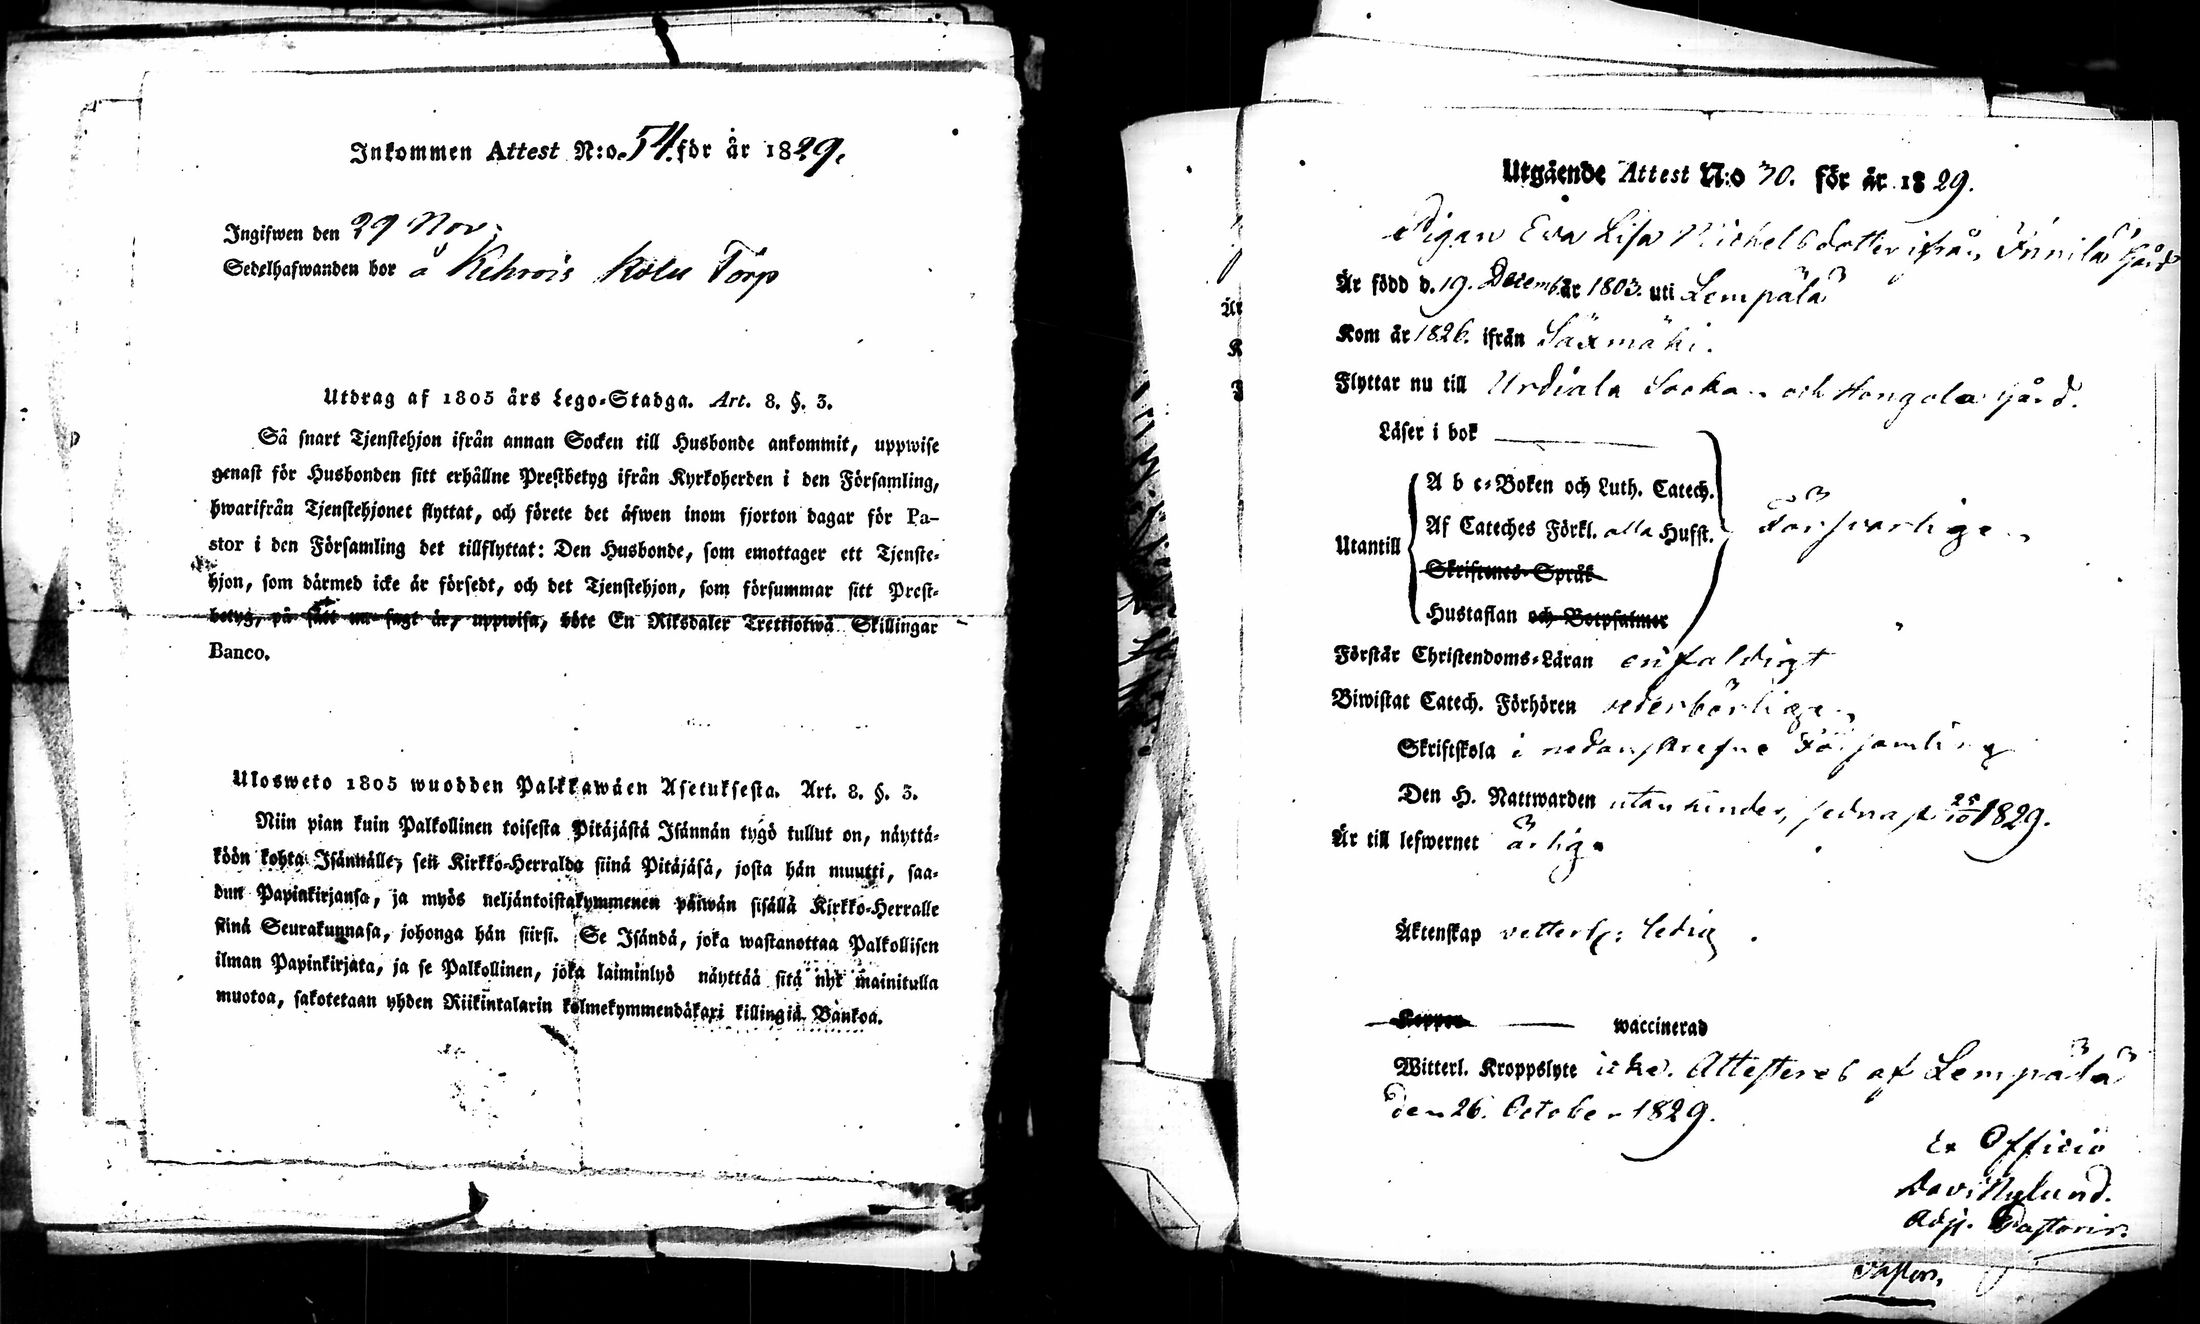 Inkommen Attest N:o 54. för år 1829.
Ingifwen den 29 Nov:
Sedelhafwanden bor å Kehrois Torp
Utdrag af 1805 års Lego-Stadga. Art. 8. §. 3.
Så snart Tjenstehjon ifrån annan Socken till Husbonde ankommit, uppwise
genast för Husbonden sitt erhållne Prestbetyg ifrån Kyrkoherden i den Församling,
hwarifrån Tjenstehjonet flyttat, och förete det äfwen inom fjorton dagar för Pa-
stor i den Församling det tillflyttat: Den Husbonde, som emottager ett Tjenste-
hjon, som därmed icke är försedt, och det Tjenstehjon, som försummar sitt Prest-
betyg, på sätt nu sagt är, uppwisa, böte En Riksdaler Trettiotwå Skillingar
Banco.
Ulosweto 1805 wuodden Palkkawäen Asetuksesta. Art. 8. §. 3.
Niin pian kuin Palkollinen toisesta Pitäjästä Isännän tygö tullut on, näyttä-
köön kohta Isännälle, sen Kirkko-Herralda siinä Pitäjäsä, josta hän muutti, saa-
dun Papinkirjansa, ja myös neljäntoistakymmenen päiwän sisällä Kirkko-Herralle
siinä Seurakunnasa, johonga hän siirsi. Se Isändä, joka wastanottaa Palkollisen
ilman Papinkirjata, ja se Palkollinen, joka laiminlyö näyttää sitä nyt mainitulla
muotoa, sakotetaan yhden Riikintalarin kolmekymmendäkaxi killingiä Bankoa.
Utgående Attest N:o 30. för år 1829.
Pigan Eva Lisa Michelsdotter ifrån Innilä Gård
Är född d. 19. Decemb. år 1803. uti Lempälä
Kom år 1826. ifrån Säxmäki.
Flyttar nu till Urdiala Sockn och Hongola Gård.
Läser i bok
A b c-Boken och Luth. Catech.
Utantill Af Cateches Förkl. alla Hufst. Försvarligen
Skriftenes-Språk
Hustaflan och Botpsalmer
Förstår Christendoms-Läran enfaldigt
Biwistat Catech. Förhören vederbörligen
Skriftskola i nedanskrefne Församling
Den H. Nattwarden utan hinder, sednast 25/10 1829.
Är till lefwernet ärlig
Äktenskap vetterl: ledig.
waccinerad
Witterl. Kroppslyte icke. Attesteres af Lempälä
den 26. October 1829.
Ex Officio
Dav: Nylund.
Adj. Pastoris.
Pastor.